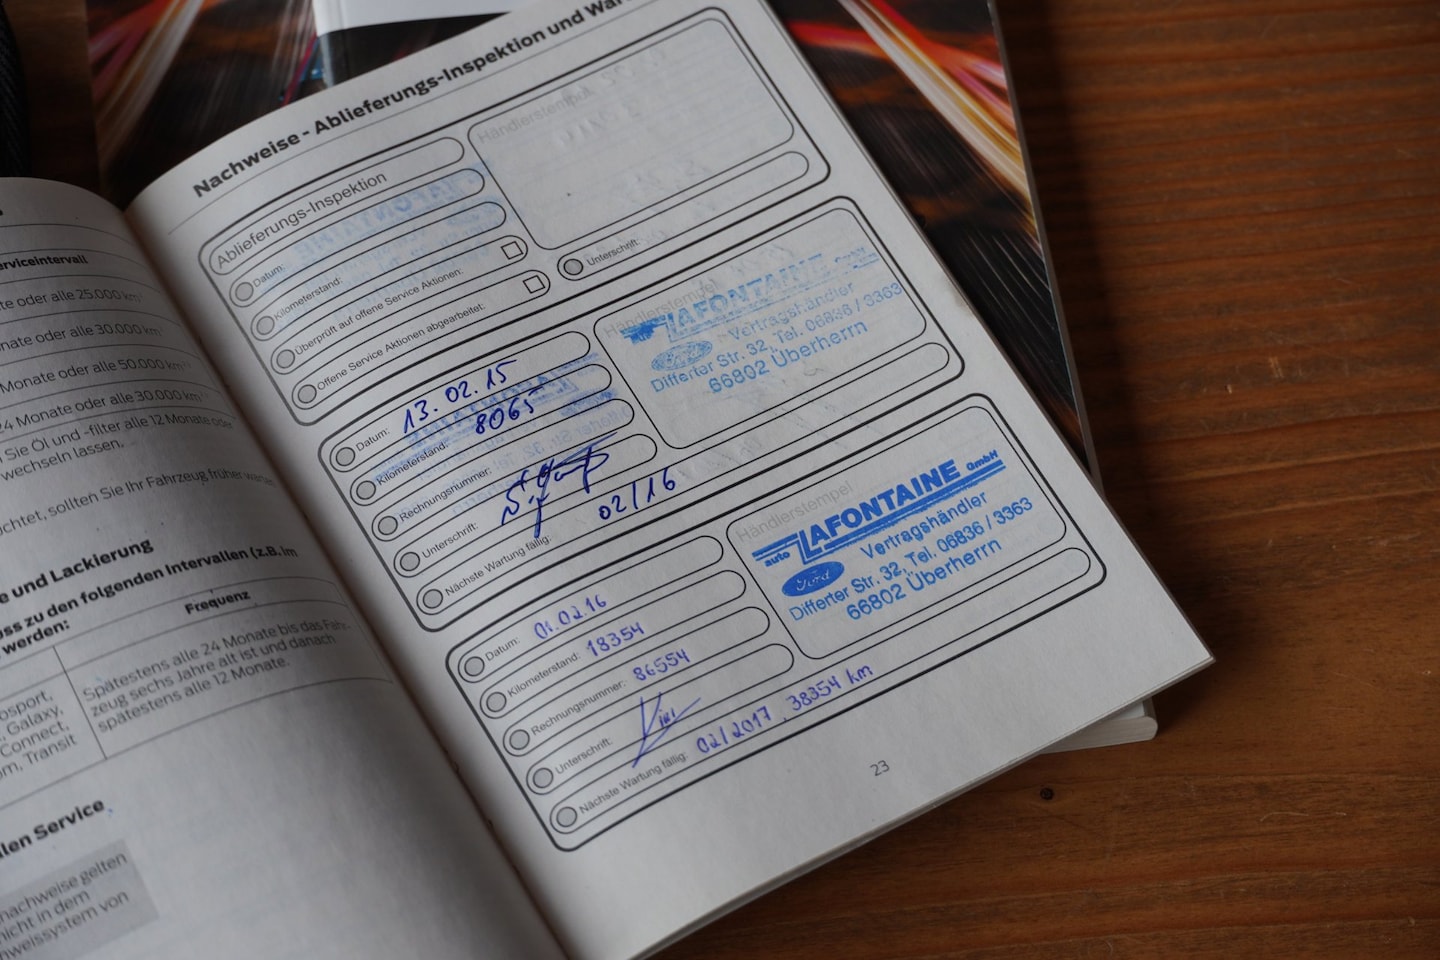 erviceintervall
te oder alle 25.000 km
nate oder alle 30.000 km
Monate oder alle 50.000 km
24 Monate oder alle 30.000 km
n Sie Öl und -filter alle 12 Monate oder
wechseln lassen.
chtet, sollten Sie Ihr Fahrzeug früher warten
e und Lackierung
uss zu den folgenden Intervallen (z.B. im
werden:
Frequenz
osport,
, Galaxy,
Connect,
om, Transit
Spätestens alle 24 Monate bis das Fahr-
zeug sechs Jahre alt ist und danach
spätestens alle 12 Monate.
llen Service
nachweise gelten
nicht in dem
hweissystem von
Nachweise - Ablieferungs-Inspektion und War
Ablieferungs-Inspektion
Datum:
Kilometerstand:
Überprüft auf offene Service Aktionen:
Offene Service Aktionen abgearbeitet:
Händlerstempel
Unterschrift:
Datum: 13.02.15
Kilometerstand: 8065
Rechnungsnummer:
Unterschrift:
Nächste Wartung fällig: 02/16
Händlerstempel
LAFONTAINE GmbH
Vertragshändler
Differter Str. 32, Tel. 06836 / 3363
66802 Überherrn
Datum: 01.02.16
Kilometerstand: 18354
Rechnungsnummer: 86554
Unterschrift:
Nächste Wartung fällig: 02/2017, 38354 km
Händlerstempel
auto LAFONTAINE GmbH
Ford
Vertragshändler
Differter Str. 32, Tel. 06836 / 3363
66802 Überherrn
23